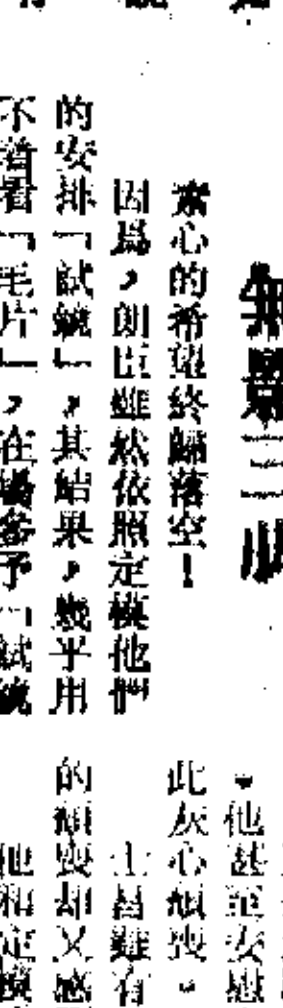 素心的希望終歸落空!
因爲,朗臣雖然依照定模他們
的安排「試鏡」,其結果,幾乎用
不着看「毛片」,在場各予「試鏡
。他甚至安慰
此灰心頹喪。
士昌雖有
的頹喪却又感
他和定模